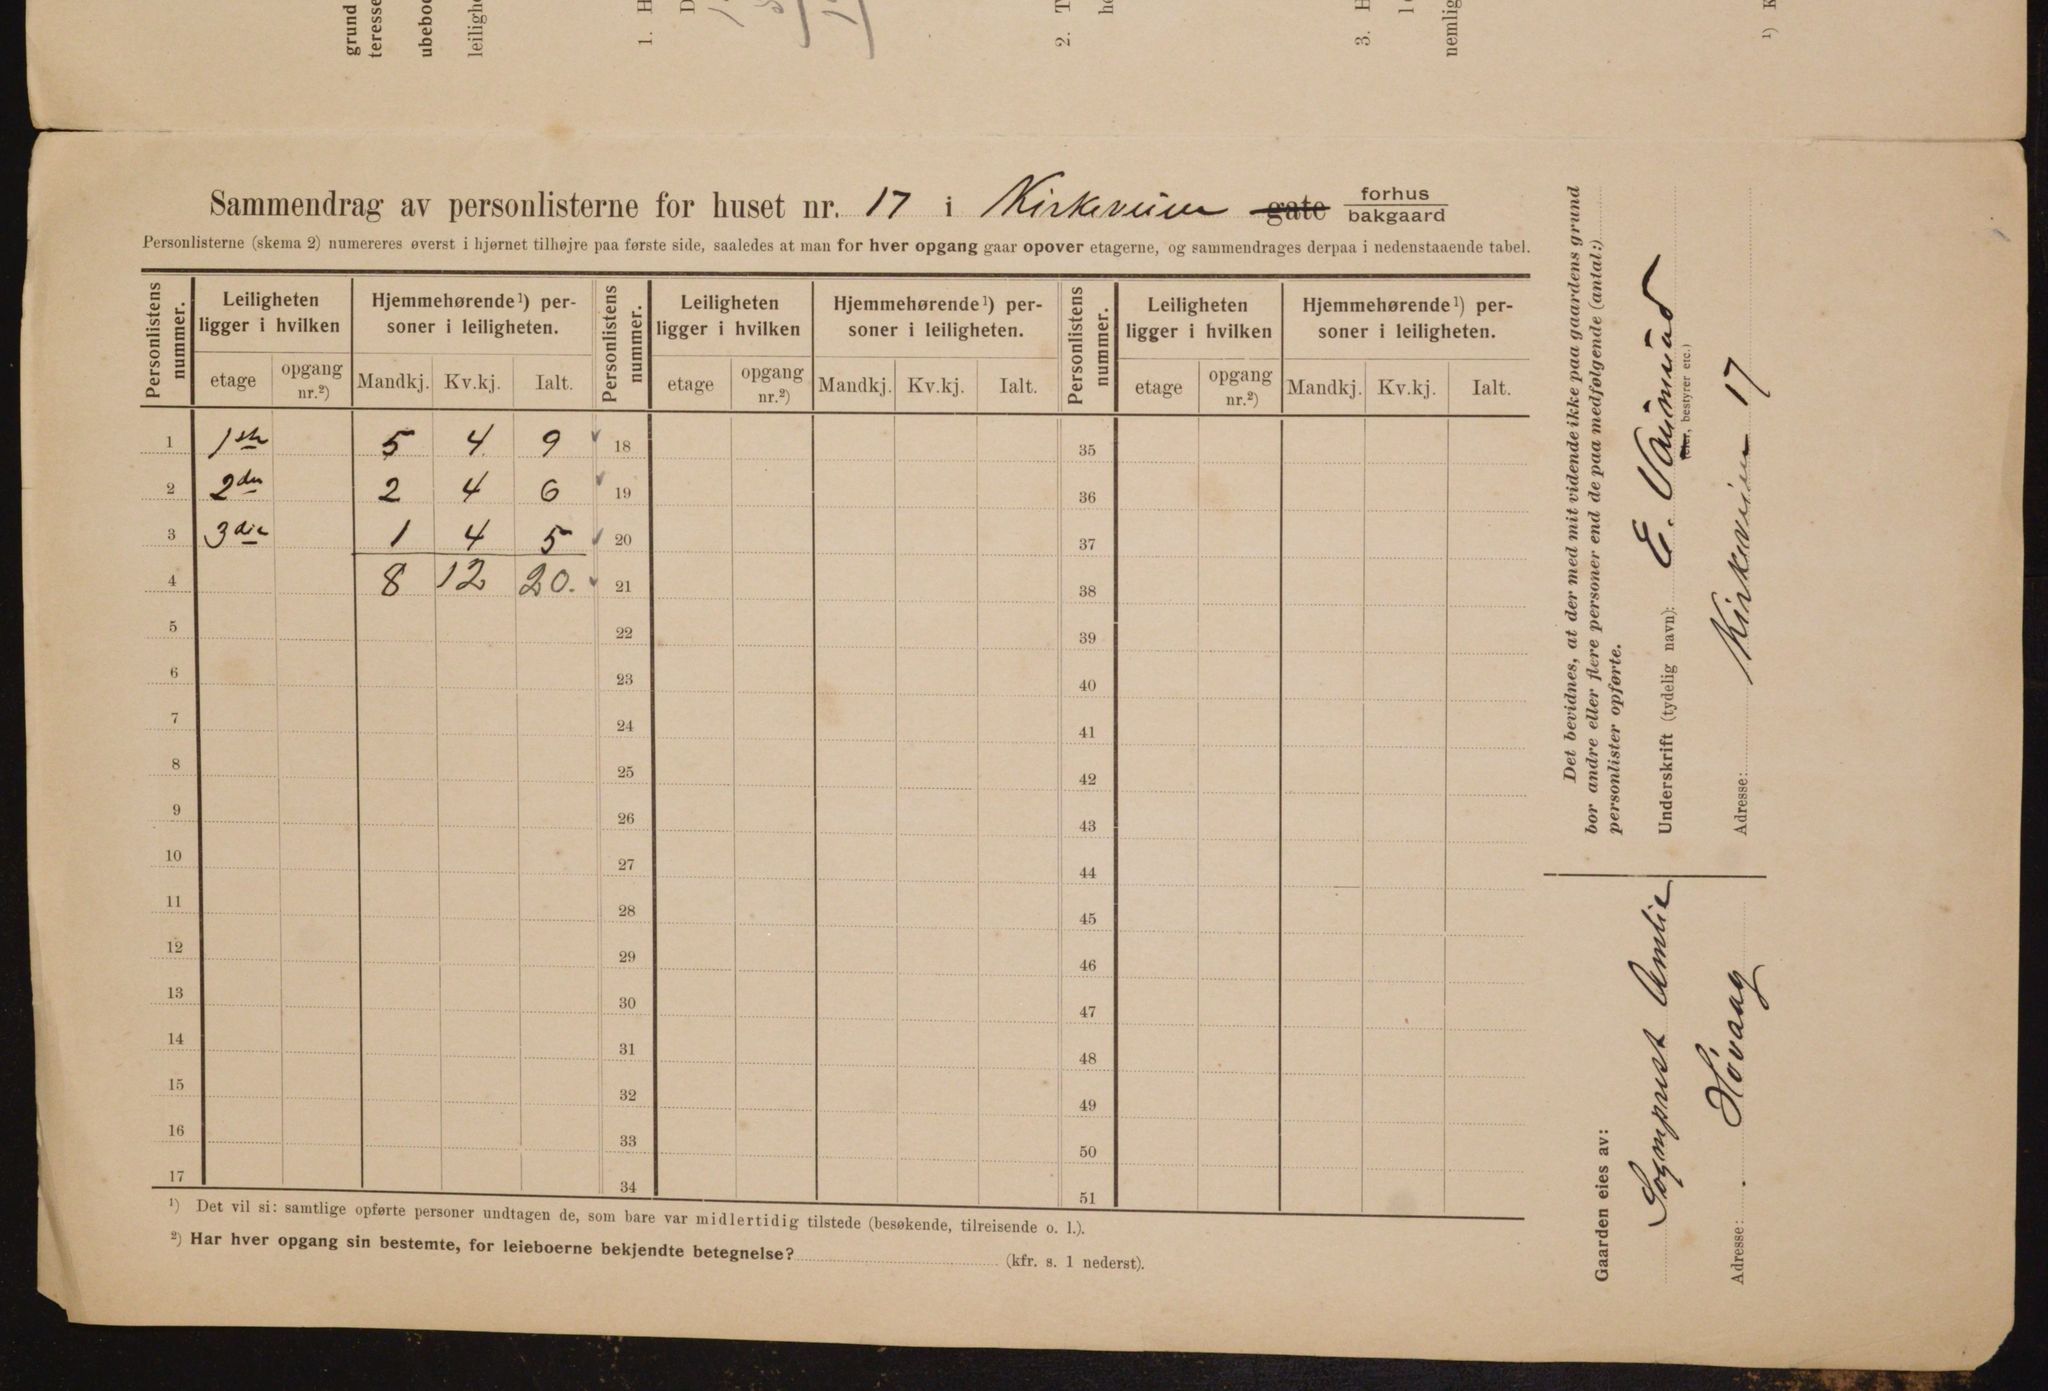 grund
teresse
ubeboe
leiligh
1. H
D
2. T
he
3. H
nemlig
¹) K
Sammendrag av personlisterne for huset nr. 17 i Kirkeveien gate forhus bakgaard
Personlisterne (skema 2) numereres øverst i hjørnet tilhøjre paa første side, saaledes at man for hver opgang gaar opover etagerne, og sammendrages derpaa i nedenstaaende tabel.
Personlistens nummer. Leiligheten ligger i hvilken Hjemmehørende¹) personer i leiligheten. Personlistens nummer. Leiligheten ligger i hvilken Hjemmehørende¹) personer i leiligheten. Personlistens nummer. Leiligheten ligger i hvilken Hjemmehørende¹) personer i leiligheten.
etage opgang nr.²) Mandkj. Kv.kj. Ialt. etage opgang nr.²) Mandkj. Kv.kj. Ialt. etage opgang nr.²) Mandkj. Kv.kj. Ialt.
1 1ste 5 4 9 18 35
2 2den 2 4 6 19 36
3 3die 1 4 5 20 37
4 8 12 20. 21 38
5 22 39
6 23 40
7 24 41
8 25 42
9 26 43
10 27 44
11 28 45
12 29 46
13 30 47
14 31 48
15 32 49
16 33 50
17 34 51
¹) Det vil si: samtlige opførte personer undtagen de, som bare var midlertidig tilstede (besøkende, tilreisende o. l.).
²) Har hver opgang sin bestemte, for leieboerne bekjendte betegnelse? (kfr. s. 1 nederst).
Det bevidnes, at der med mit vidende ikke paa gaardens grund
bor andre eller flere personer end de paa medfølgende (antal:)
personlister opførte.
Underskrift (tydelig navn): E.
(eier, bestyrer etc.)
Adresse: Kirkeveien 17
Gaarden eies av:
Sogneprest Amlie
Adresse: Høvaag